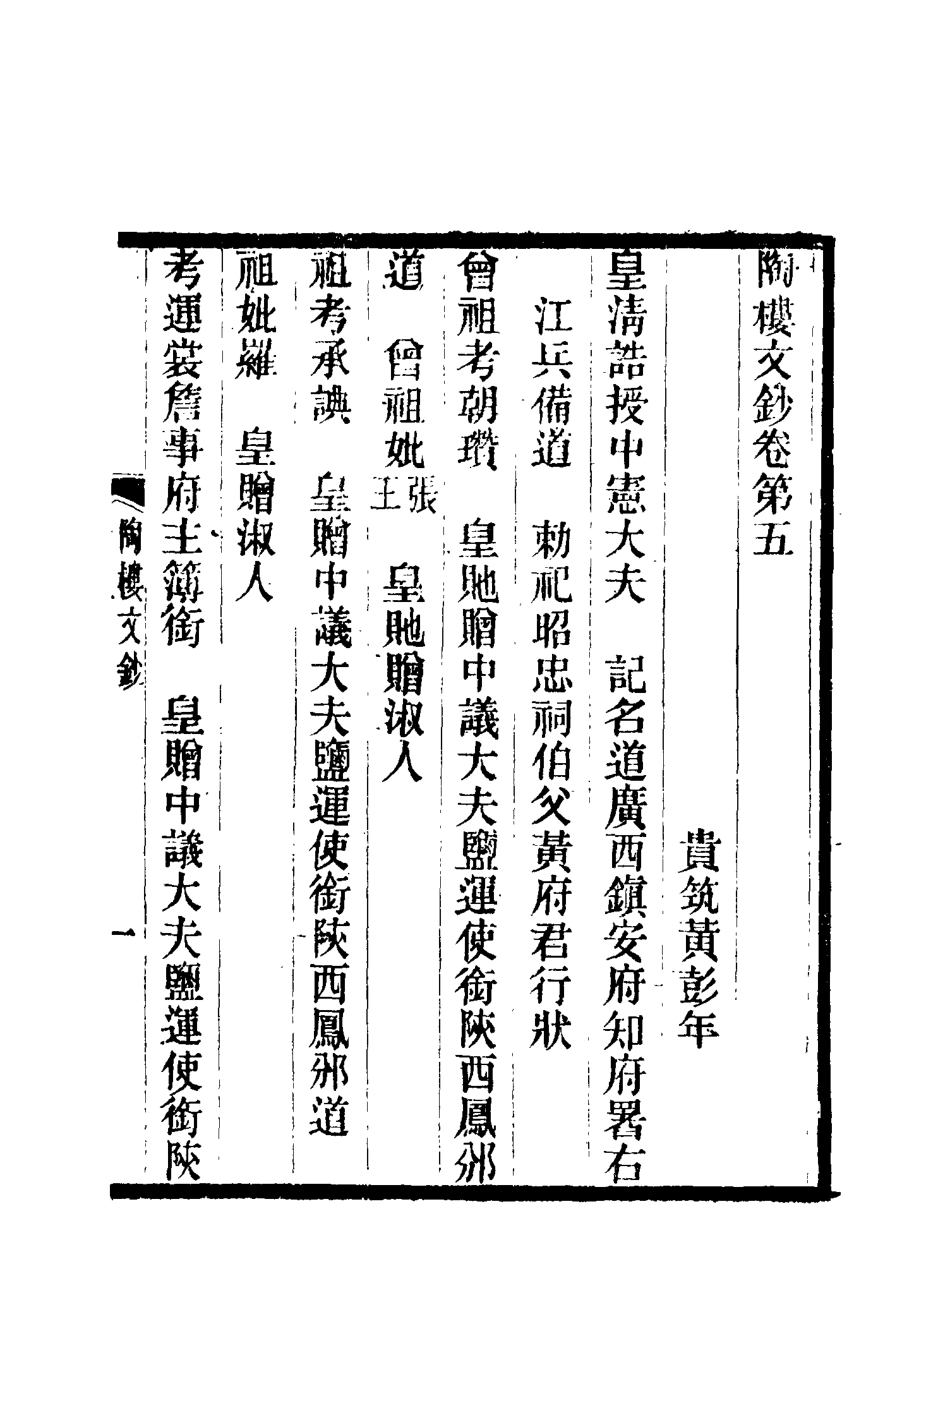 陶樓文鈔卷第五
貴筑黃彭年
皇淸誥授中憲大夫　記名道廣西鎭安府知府署右
江兵備道　勅祀昭忠祠伯父黃府君行狀
曾祖考朝瓚　皇貤贈中議大夫鹽運使銜陝西鳳邠
道　曾祖妣張王　皇貤贈淑人
祖考承謨　皇贈中議大夫鹽運使銜陝西鳳邠道
祖妣羅　皇贈淑人
考運裳詹事府主簿銜　皇贈中議大夫鹽運使銜陝
陶樓文鈔　一